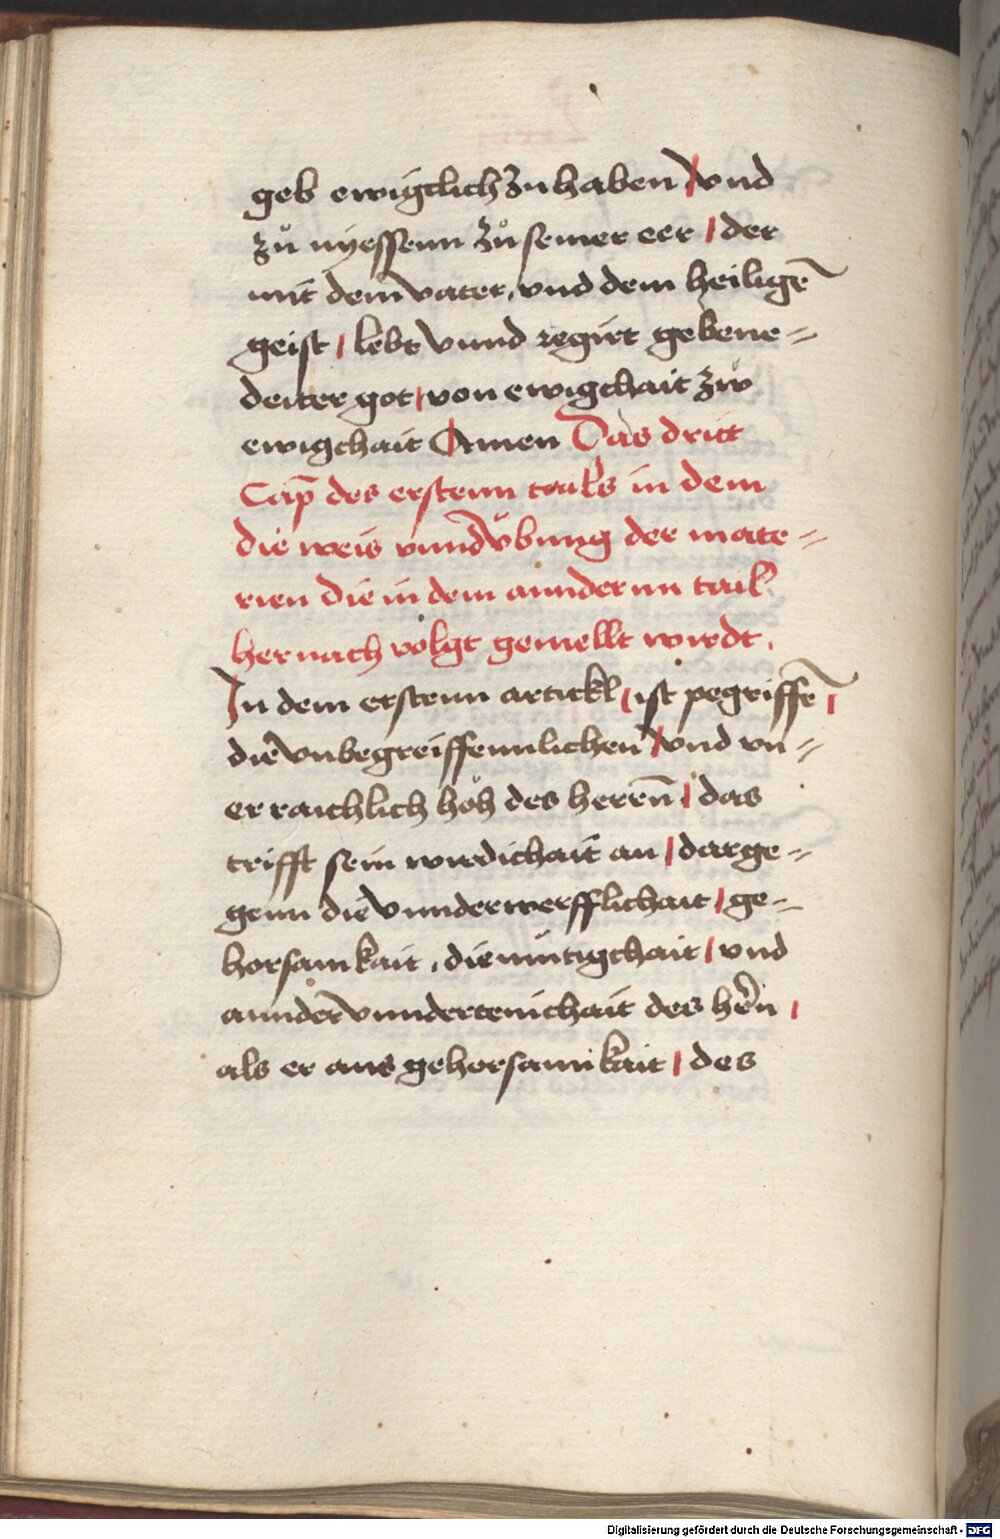 geb ewigclich zu haben / vnd
zů nyessenn zů seiner eer / der
mit dem vater, vnd dem heiligē
geist / lebt vnnd regirt gebene=
deiter got / von ewigchait zẘ
ewigchait Amen Das dritt
Cap̄ des erstenn tails in dem
die weis vnnd v̈bung der mate=
rien die in dem anndernn tail
hernach volgt gemellt wirdt.
In dem erstenn artickl / ist pegriffē /
die vnbegreiffennlichen / vnd vn=
erraichlich höh des herrn̄ / das
trifft sein wirdichait an / darge=
genn die vnnderwerfflichait / ge=
horsamkait, diemütigchait / vnd
annder vnndertenichait des hērn /
als er aus gehorsamikait / des
Digitalisierung gefördert durch die Deutsche Forschungsgemeinschaft - DFG